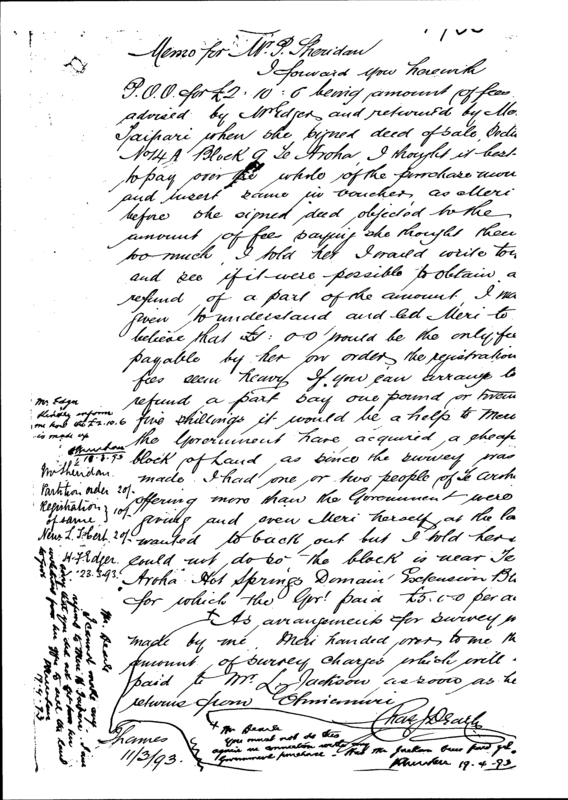 Memo for Mr. P. Sheridan
I forward you herewith
P.O.O for £2.10.6 being amount of fees
advised by Mr Edger and returned by
Taipari when she signed deed of sale
No 14A Block 9 Te Aroha, I thought it best
to pay over the whole of the purchase
and insert same in voucher, as Meri
before she signed deed objected to the
amount of fee saying she thought them
too much, I told her I would write to
and see if it were possible to obtain a
refund of a part of the amount, I was
given to understand and led Meri to
believe that £1:0-0 would be the only fee
payable by her on order, the registration
fees seem heavy If you can arrange to
refund a part say one pound or
five shillings it would be a help to Meri
the Government have acquired a cheap
block of Land, as since the survey was
made I had one or two people of Te Aroha
offering more than the Government were
giving and even Meri herself at the
wanted to back out but I told her
could not do so the block is near Te
Aroha Hot Springs Domain Extension
for which the Govt paid £5.0.0 per
+ As arrangements for survey
made by me, Meri handed over to me the
amount of survey charges which will
paid to Mr. L. Jackson as soon as he
returns from Ohinemuri
Thames
11/3/93.
Mr. Edger
Kindly inform
me how the £2.10.6
is made up
P Sheridan
18.3.93
Mr Sheridan.
Partition order 20/-
Registration of same } 10/-
New L.T. Cert. 20/-
H.F. Edger
23.3.93.
Mr. Dearle
I cannot make any
refund to Mere
19.4.93
+ Mr Dearle
You must not do this
again in connection with any
Government purchase.
Has Mr Jackson been paid yet.
P Sheridan 19.4.93